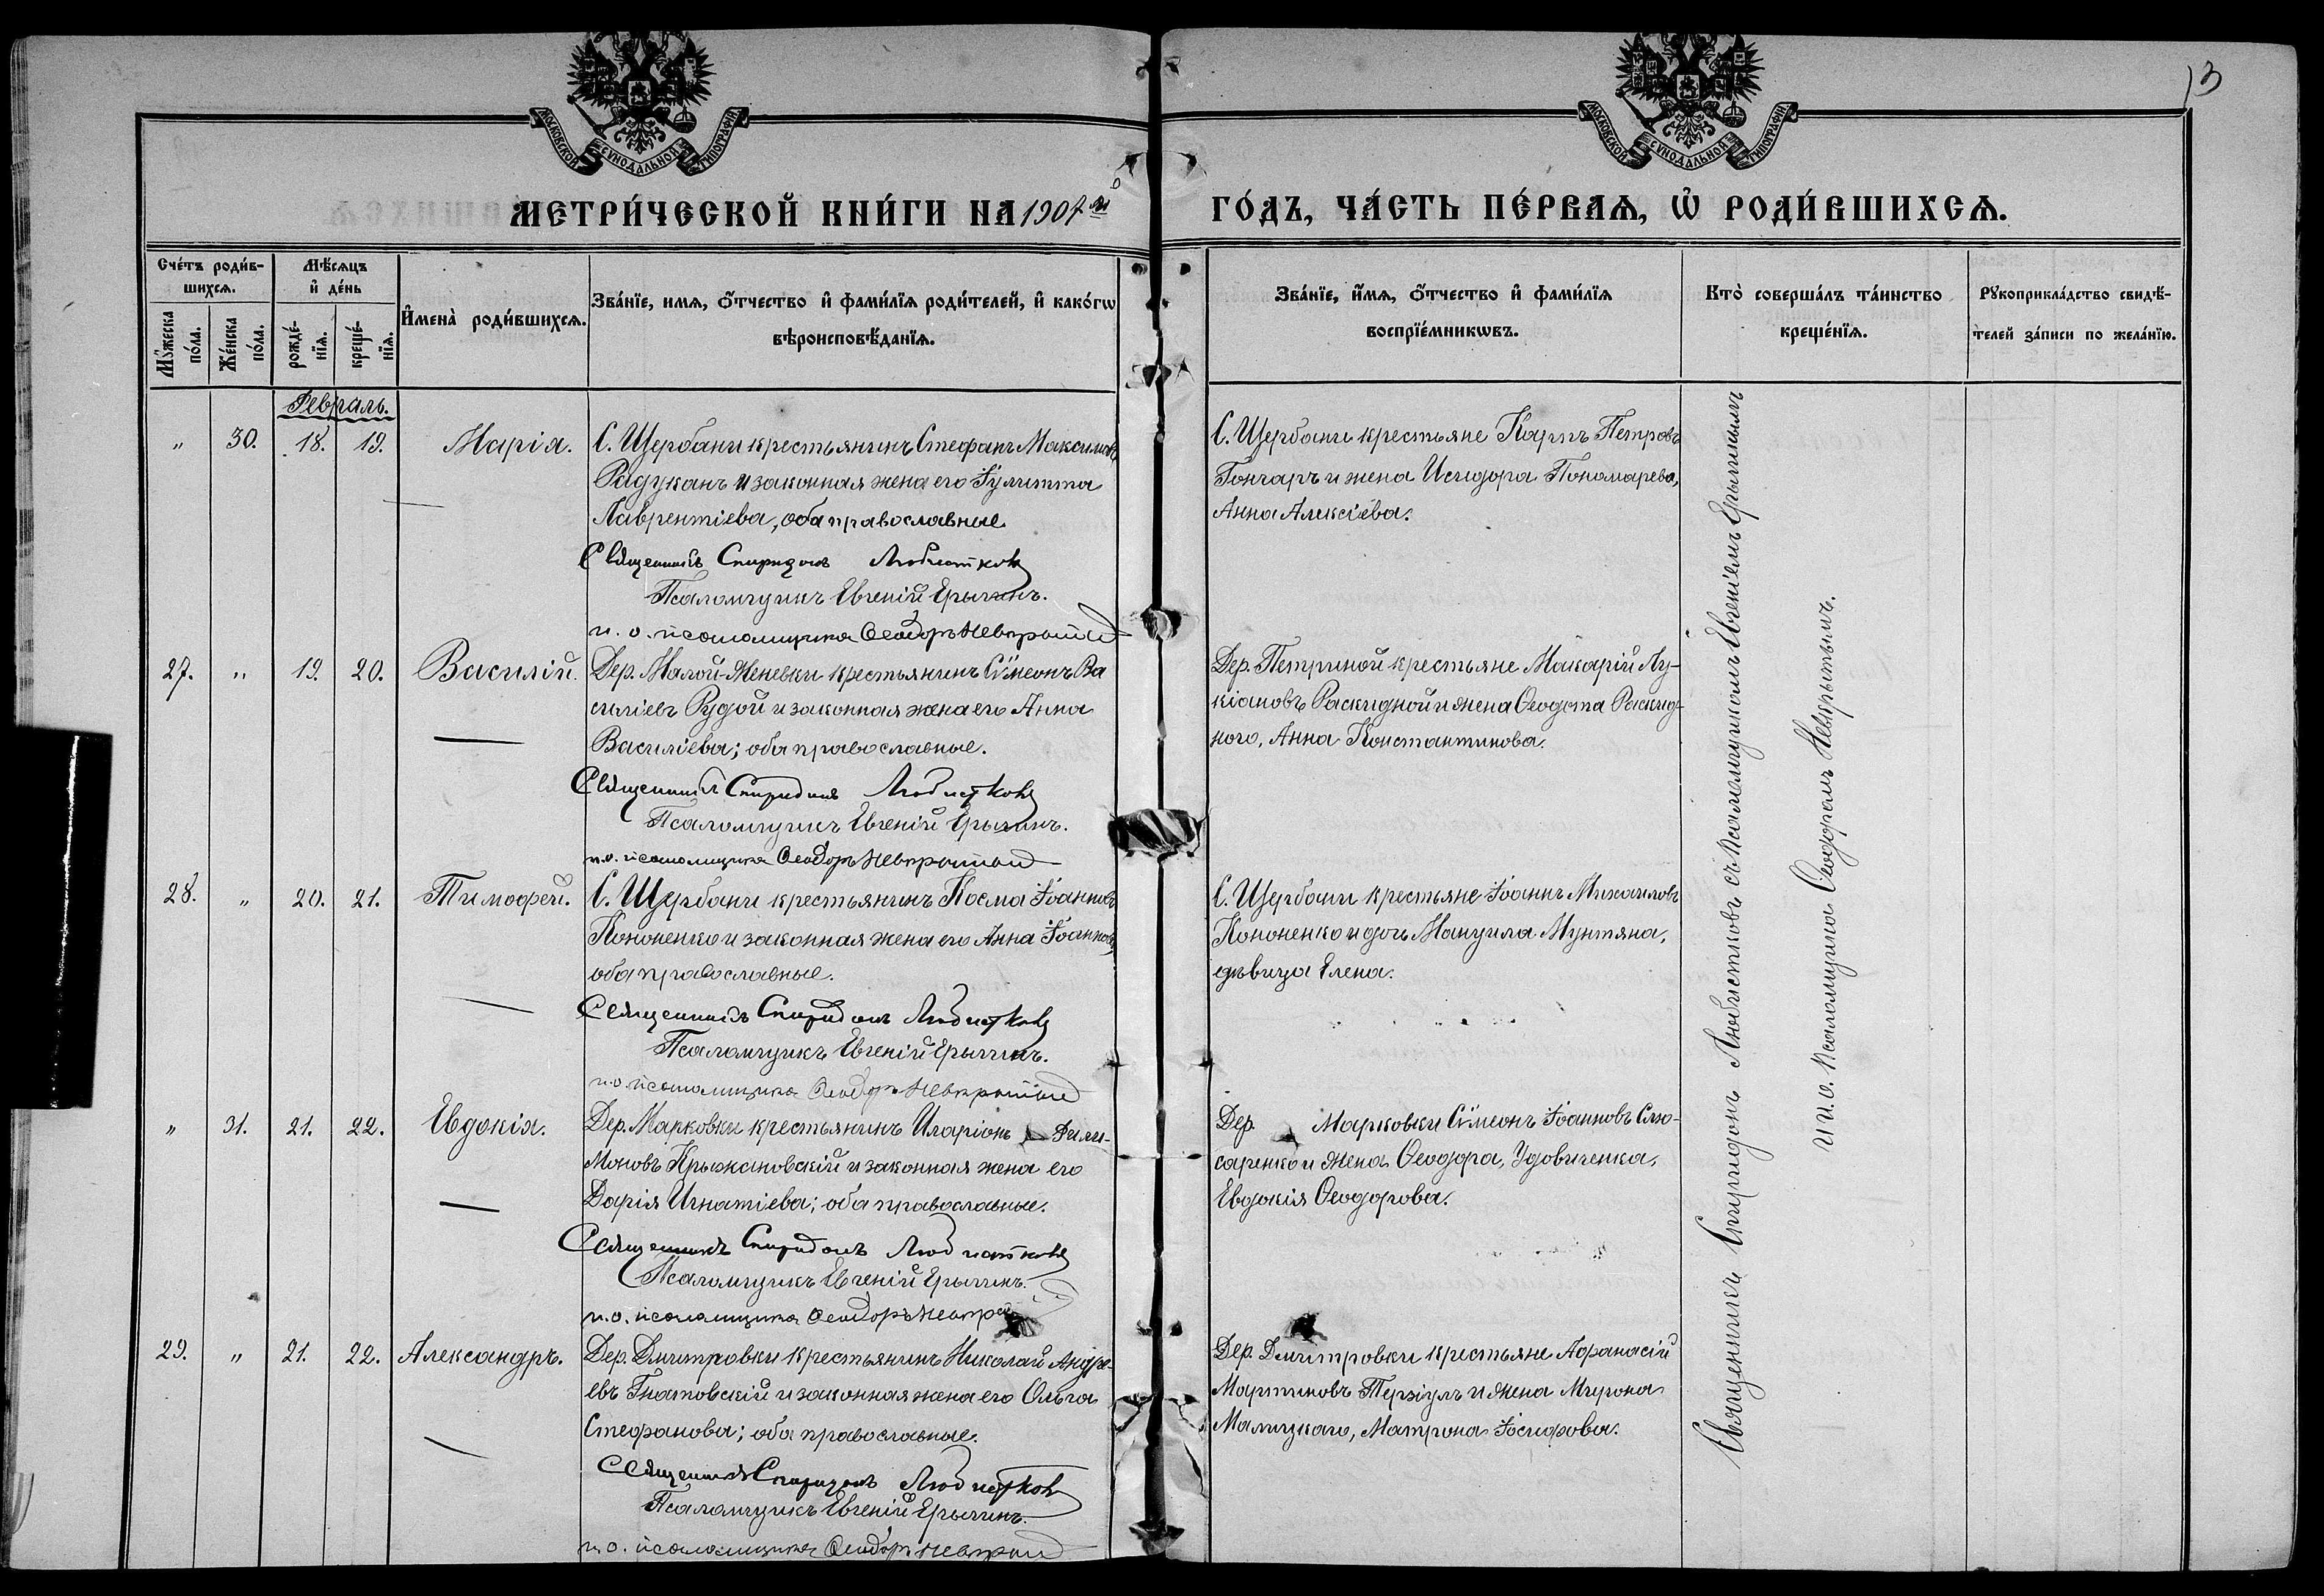 МОСКОВСКОЙ СѴНОДАЛЬНОЙ ТИПОГРАФІИ
МОСКОВСКОЙ СѴНОДАЛЬНОЙ ТИПОГРАФІИ
13
МЕТРИ́ЧЕСКОЙ КНИ́ГИ НА 1907 й
ГО́ДЪ, ЧА́СТЬ ПЕ́РВАѦ, Ѡ РОДИ́ВШИХСѦ.
Сче́тъ роди́в-
шихсѧ.
Мꙋ́жеска по́ла.
Же́нска по́ла.
Мѣ́сѧцъ
и де́нь
рожде́-
нїѧ.
креще́-
нїѧ.
Имена̀ роди́вшихсѧ.
Зва́нїе, имѧ, ѻ́тчество и фами́лїѧ роди́телей, и како́гѡ
вѣроисповѣ́данїѧ.
Зва́нїе, и́мѧ, ѻ́тчество и фами́лїѧ
воспрїе́мникѡвъ.
Кто̀ соверша́лъ та́инство
креще́нїѧ.
Рꙋкоприкла́дство свидѣ́-
телей за́писи по жела́нїю.
Февраль.
" 30. 18. 19. Марія.
С. Щербани крестьянинъ Стефанъ Максимовъ
Радуканъ и законная жена его Іулитта
Лаврентіева, оба православные
Священникъ Спиридонъ Любистковъ
Псаломщикъ Евгеній Ерыгинъ.
и. о. псаломщика Ѳеодоръ Невкрытый
С. Щербани крестьяне Карпъ Петровъ
Гончаръ и жена Исидора Пономарева,
Анна Алексіева.
27. " 19. 20. Василій.
Дер. Малой-Женевки крестьянинъ Сѵмеонъ Ва
силіевъ Рудой и законная жена его Анна
Василіева; оба православные.
Священникъ Спиридонъ Любистковъ
Псаломщикъ Евгеній Ерыгинъ.
и. о. псаломщика Ѳеодоръ Невкрытый
Дер. Петриной крестьяне Макарій Лу-
кіановъ Раскидной и жена Ѳеодота Раскид-
ного, Анна Константинова.
28. " 20. 21. Тимофей.
С. Щербани крестьянинъ Косма Іоанновъ
Кононенко и законная жена его Анна Іоаннова,
оба православные.
Священникъ Спиридонъ Любистковъ
Псаломщикъ Евгеній Ерыгинъ.
и. о. псаломщика Ѳеодоръ Невкрытый
С. Щербани крестьяне Іоаннъ Михаиловъ
Кононенко и дочь Мануила Мунтяна,
дѣвица Елена.
" 31. 21. 22. Евдокія.
Дер. Марковки крестьянинъ Иларіонъ Фили-
моновъ Крыжановскій и законная жена его
Дарія Игнатіева; оба православные.
Священникъ Спиридонъ Любистковъ
Псаломщикъ Евгеній Ерыгинъ.
и. о. псаломщика Ѳеодоръ Невкры
Дер. Марковки Сѵмеонъ Іоанновъ Слю-
саренко и жена Ѳеодора, Удовиченка,
Евдокія Ѳеодорова.
29. " 21. 22. Александръ.
Дер. Дмитровки крестьянинъ Николай Андре-
евъ Гнатовскій и законная жена его Ольга
Стефанова; оба православные.
Священникъ Спиридонъ Любистковъ
Псаломщикъ Евгеній Ерыгинъ.
и. о. псаломщика Ѳеодоръ Невкрытый
Дер. Дмитровки крестьяне Афанасій
Мартиновъ Терзіулъ и жена Мирона
Малицкаго, Матрона Іосифова.
Священникъ Спиридонъ Любистковъ съ псаломщикомъ Евгеніемъ Ерыгинымъ
и и. о. псаломщика Ѳеодоромъ Невкрытымъ.